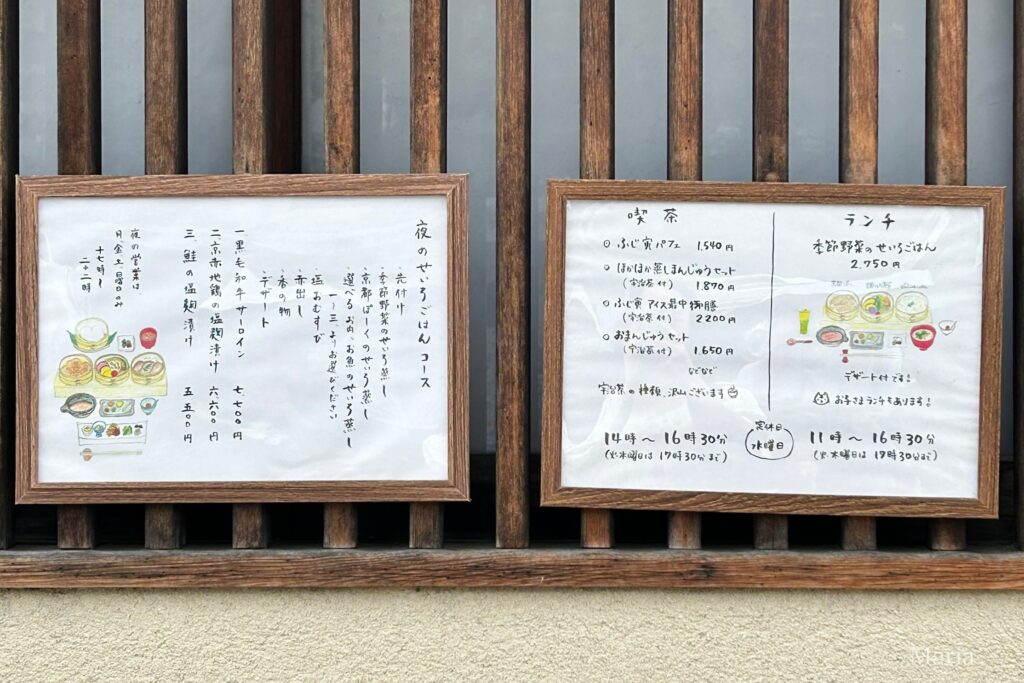 夜のせいろごはんコース
・先付け
・季節野菜のせいろ蒸し
・京都ぽーくのせいろ蒸し
・選べるお肉、お魚のせいろ蒸し
一〜三よりお選びください
・塩おむすび
・赤出し
・香の物
・デザート
一 黒毛和牛サーロイン 七、七〇〇円
二 京赤地鶏の塩麹漬け 六、六〇〇円
三 鮭の塩麹漬け 五、五〇〇円
夜の営業は
月、金、土、日曜日のみ
十七時〜
二十二時
喫茶
ふじ寅パフェ 1.540円
ほかほか蒸しまんじゅうセット
(宇治茶付) 1.870円
ふじ寅アイス最中御膳
(宇治茶付) 2200円
おまんじゅうセット
(宇治茶付) 1.650円
などなど
宇治茶の種類、沢山ございます
14時〜16時30分
(火・木曜日は17時30分まで)
定休日
水曜日
ランチ
季節野菜のせいろごはん
2.750円
デザート付です!
お子さまランチもあります!
11時〜16時30分
(火・木曜日は17時30分まで)
Maria